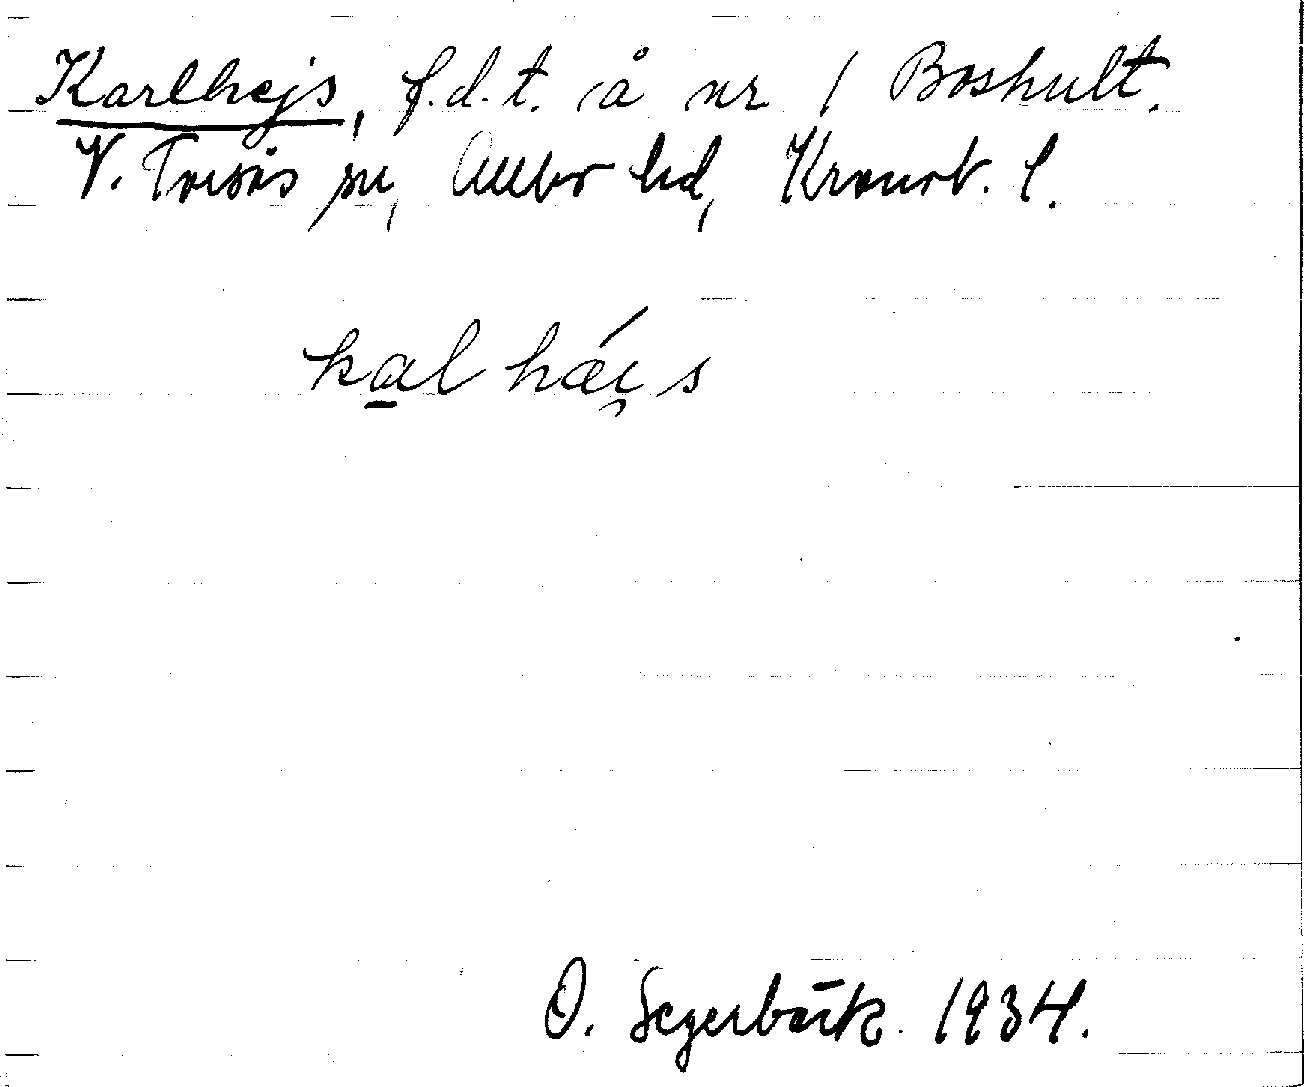 Karlhejs, f.d.t. å nr 1 Boshult.
V. Torsås sn, Allbo hd, Kronob. l.
kal hæi̯s
O. Segerbäck. 1934.